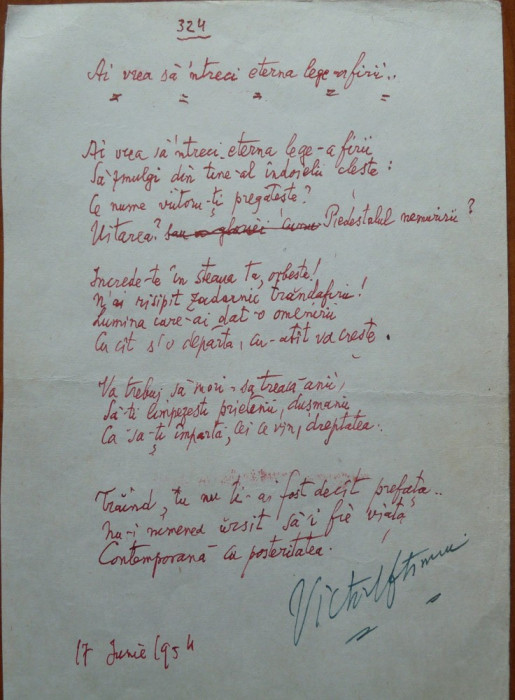 324
Ai vrea să 'ntreci eterna lege-a firii..
Ai vrea să 'ntreci eterna lege-a firii
Să smulgi din tine-al îndoielii cleste:
Ce nume viitoru-ți pregătește?
Uitarea? sau a gloriei Piedestalul nemuririi?
Increde-te în steaua ta, orbește!
N'ai risipit zadarnic trăndafirii!
Lumina care-ai dat-o omenirii
Cu cît s'o depărta, cu-atît va crește.
Va trebui să mori - să treacă anii,
Să-ți limpezești prietenii, dușmanii
Ca să-ți împartă, cei ce vin, dreptatea.
Trăind, tu nu ti-ai fost decît prefața..
Nu-i nimenea ursit să-i fie viața
Contemporană cu posteritatea.
Victor Eftimiu
17 Iunie 1954